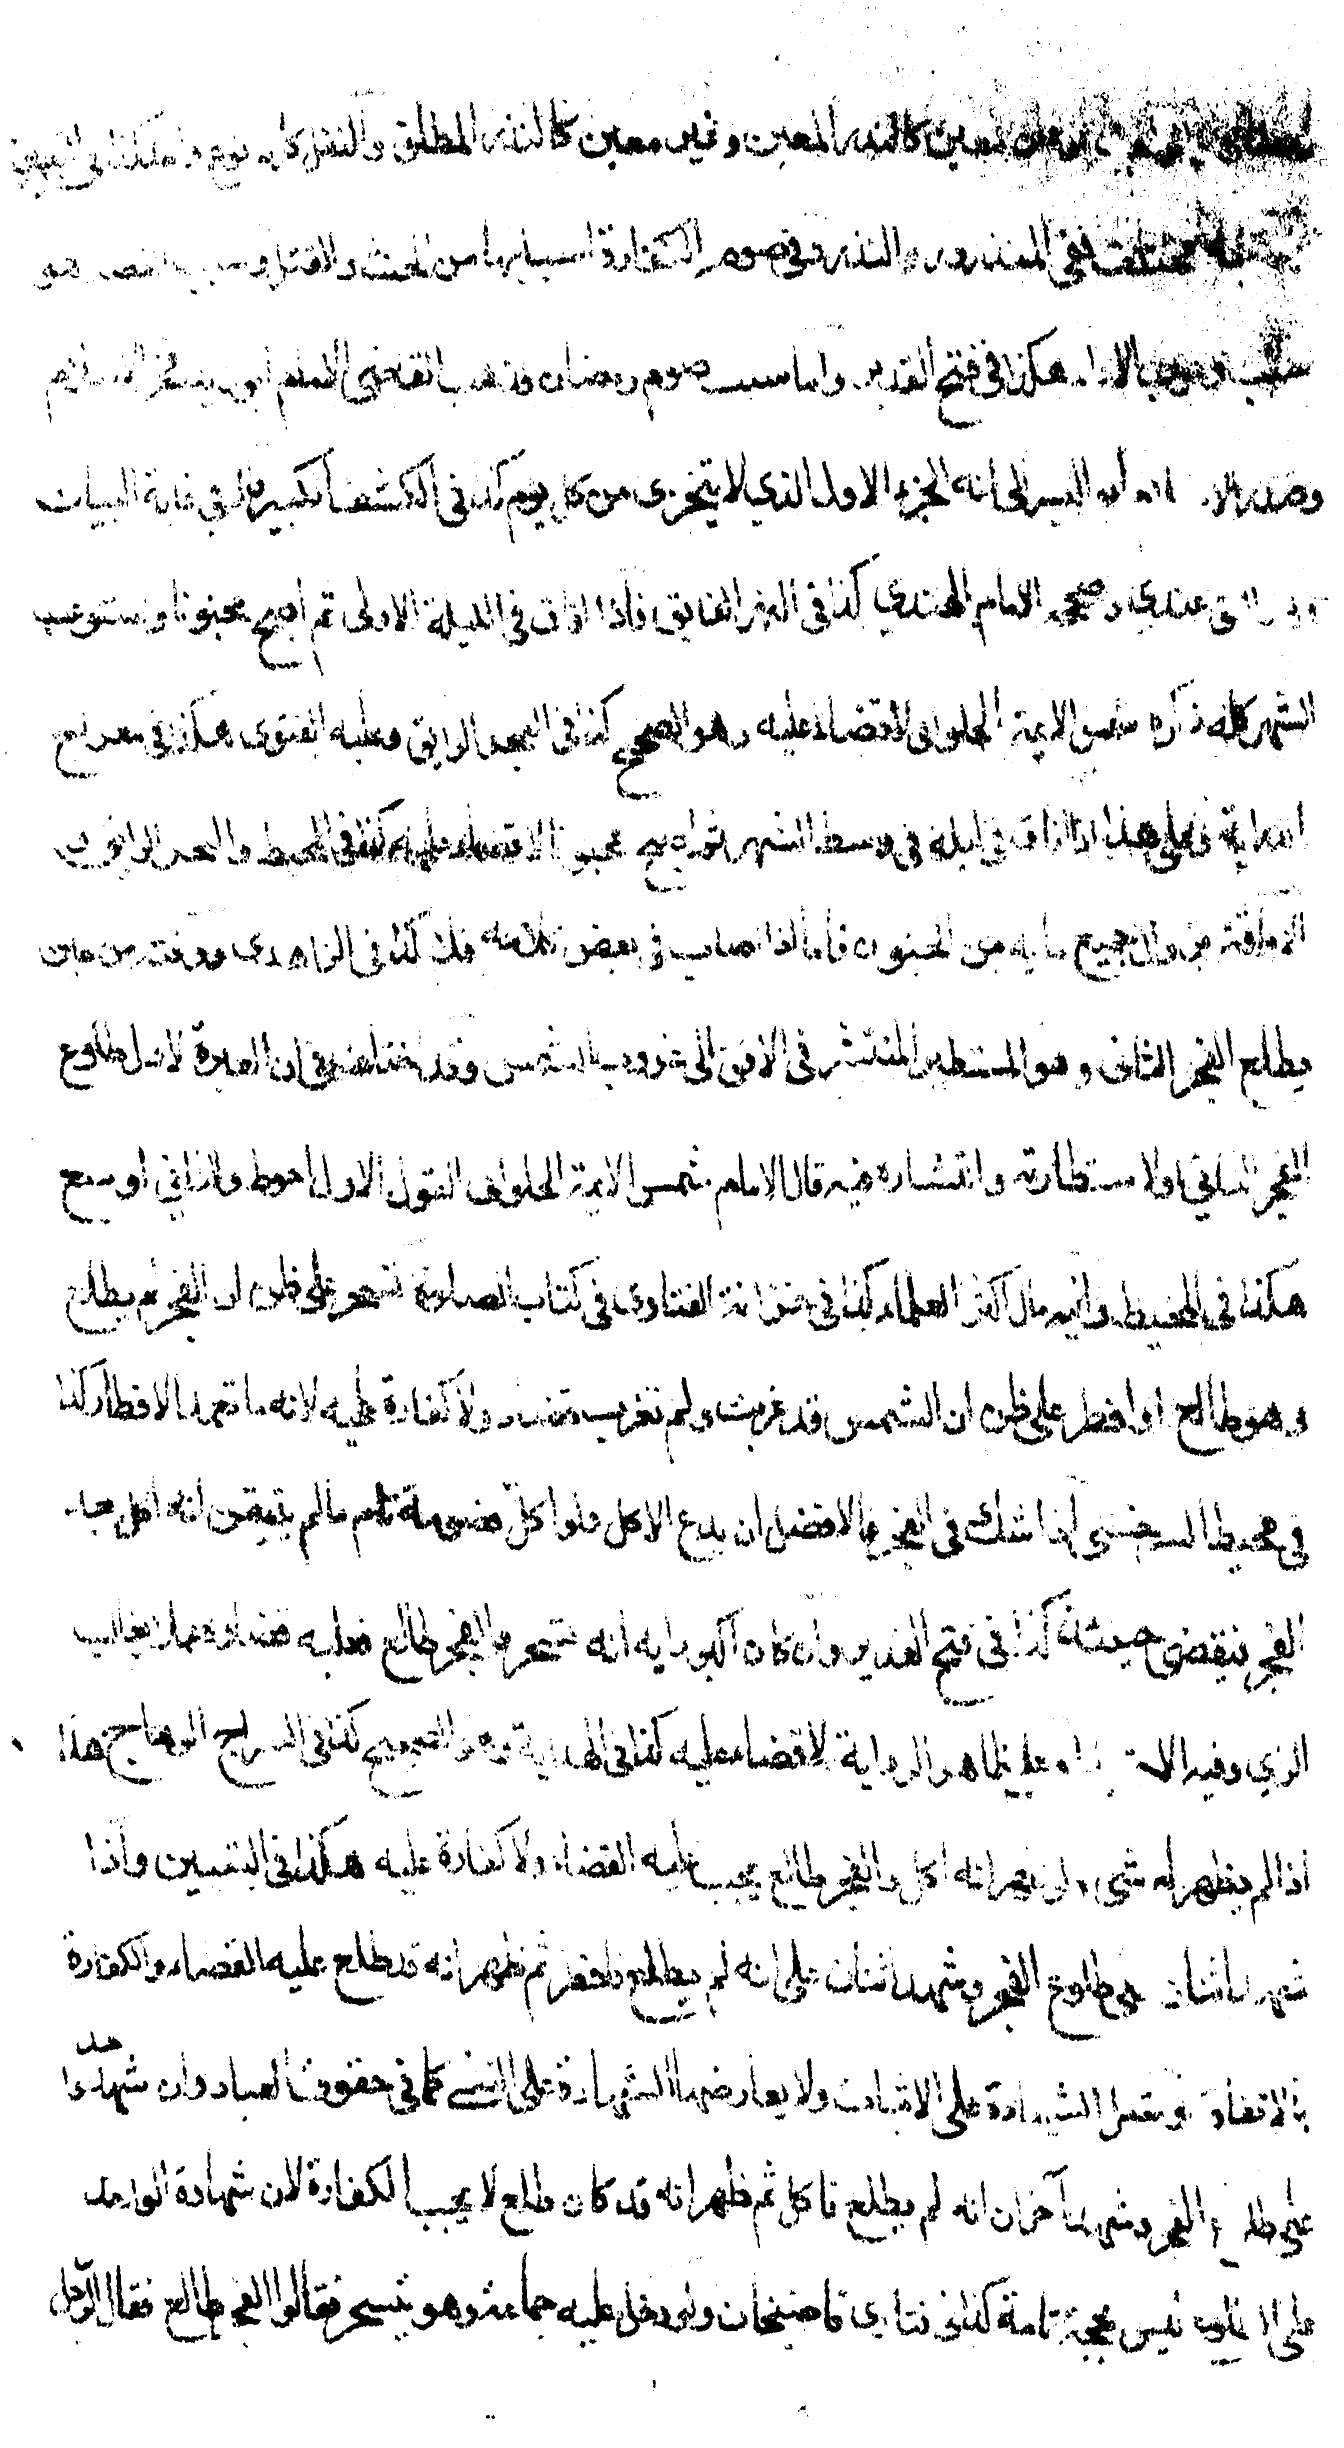 معين كالنذر المعين وغير معين كالنذر المطلق والنفل كله نوع واحد هكذا في التبيين
مختلفة ففي المنذور النذر وفي صوم الكفارة اسبابها من الحنث والقتل وسبب القضاء هو
سبب وجوب الاداء هكذا في فتح القدير واما سبب صوم رمضان فذهب القاضي الامام ابو زيد فخر الاسلام
وصدر الاسلام أبو اليسر الى انه الجزء الاول الذي لا يتجزى من كل يوم كذا في الكشف الكبير قال في غاية البيان
وهو الحق عندي وصححه الامام الهندي كذا في النهر الفايق فاذا افاق في الليلة الاولى ثم اصبح مجنونا واستوعب
الشهر كله ذكره شمس الايمة الحلواني لا قضاء عليه وهو الصحيح كذا في البحر الرايق وعليه الفتوى هكذا في معراج
الدراية وعلى هذا اذا افاق في ليلة في وسط الشهر ثم اصبح مجنونا لا قضاء عليه كذا في المحيط والبحر الرايق
الافاقة بزوال جميع ما به من الجنون فاما اذا صاب في بعض كلامه فلا كذا في الزاهدي ووقته من حين
يطلع الفجر الثاني وهو المستطير المنتشر في الافق الى غروب الشمس وقد اختلف في ان العبرة لاول طلوع
الفجر الثاني او لاستطارته وانتشاره فيه قال الامام شمس الايمة الحلواني القول الاول احوط والثاني اوسع
هكذا في المحيط واليه مال اكثر العلماء كذا في خزانة الفتاوى في كتاب الصلوة تسحر على ظن ان الفجر لم يطلع
وهو طالع او افطر على ظن ان الشمس قد غربت ولم تغرب قضاه ولا كفارة عليه لانه ما تعمد الافطار كذا
في محيط السرخسي اذا شك في الفجر فالافضل ان يدع الاكل فلو اكل فصومه تام ما لم يتيقن انه اكل بعد
الفجر فيقضي حينئذ كذا في فتح القدير وان كان اكبر رايه انه تسحر والفجر طالع فعليه قضاوه عملا بغالب
الراي وفيه الاحتياط وعلى ظاهر الرواية لا قضاء عليه كذا في الهداية وهو الصحيح كذا في السراج الوهاج هذا
اذا لم يظهر له شي ولو ظهر انه اكل والفجر طالع يجب عليه القضاء ولا كفارة عليه هكذا في التبيين واذا
شهد اثنان على طلوع الفجر وشهد اثنان على انه لم يطلع فافطر ثم ظهر انه قد طلع عليه القضاء والكفارة
بالاتفاق وتقبل الشهادة على الاثبات ولا يعارضها الشهادة على النفي كما في حقوق العباد وان شهد واحد
على طلوع الفجر وشهد آخران انه لم يطلع فاكل ثم ظهر انه قد كان طلع لا يجب الكفارة لان شهادة الواحد
على الا ليس بحجة تامة كذا في فتاوى قاضيخان ولو دخل عليه جماعة وهو يتسحر فقالوا الفجر طالع فقال الرجل